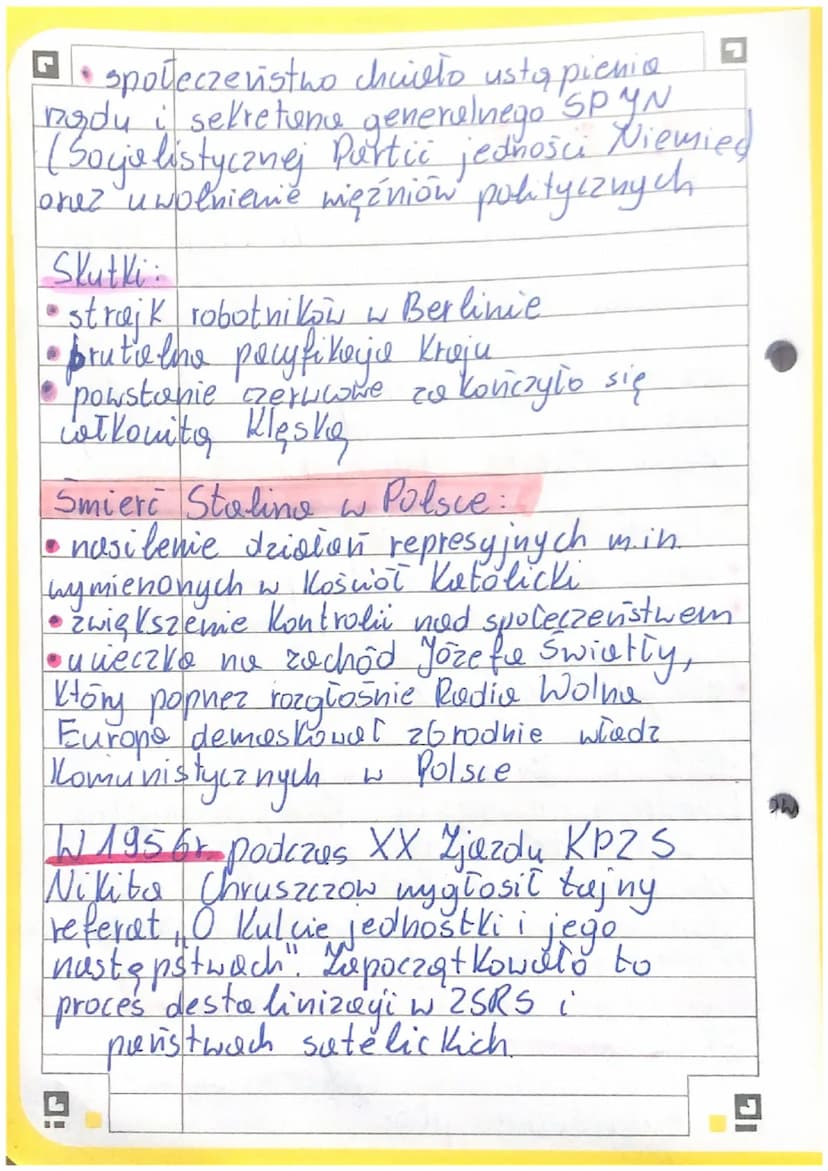 • społeczeństwo chciało ustąpienia
rządu i sekretarza generalnego SPJN
(Socjalistycznej Partii jedności Niemiec)
oraz uwolnienie więźniów politycznych
Skutki:
• strajk robotników w Berlinie
• brutalna pacyfikacja Kraju
• powstanie czerwcowe zakończyło się
całkowitą klęską
Śmierć Stalina w Polsce:
• nasilenie działań represyjnych m.in.
wymienonych w Kościół Katolicki
• zwiększenie kontroli nad społeczeństwem
• ucieczka na zachód Józefa Światły,
który poprzez rozgłośnie Radia Wolna
Europa demaskował zbrodnie władz
Komunistycznych w Polsce
W 1956r. podczas XX Zjazdu KPZS
Nikita Chruszczow wygłosił tajny
referat „O Kulcie jednostki i jego
następstwach". Zapoczątkowało to
proces destalinizacji w ZSRS i
państwach satelickich.